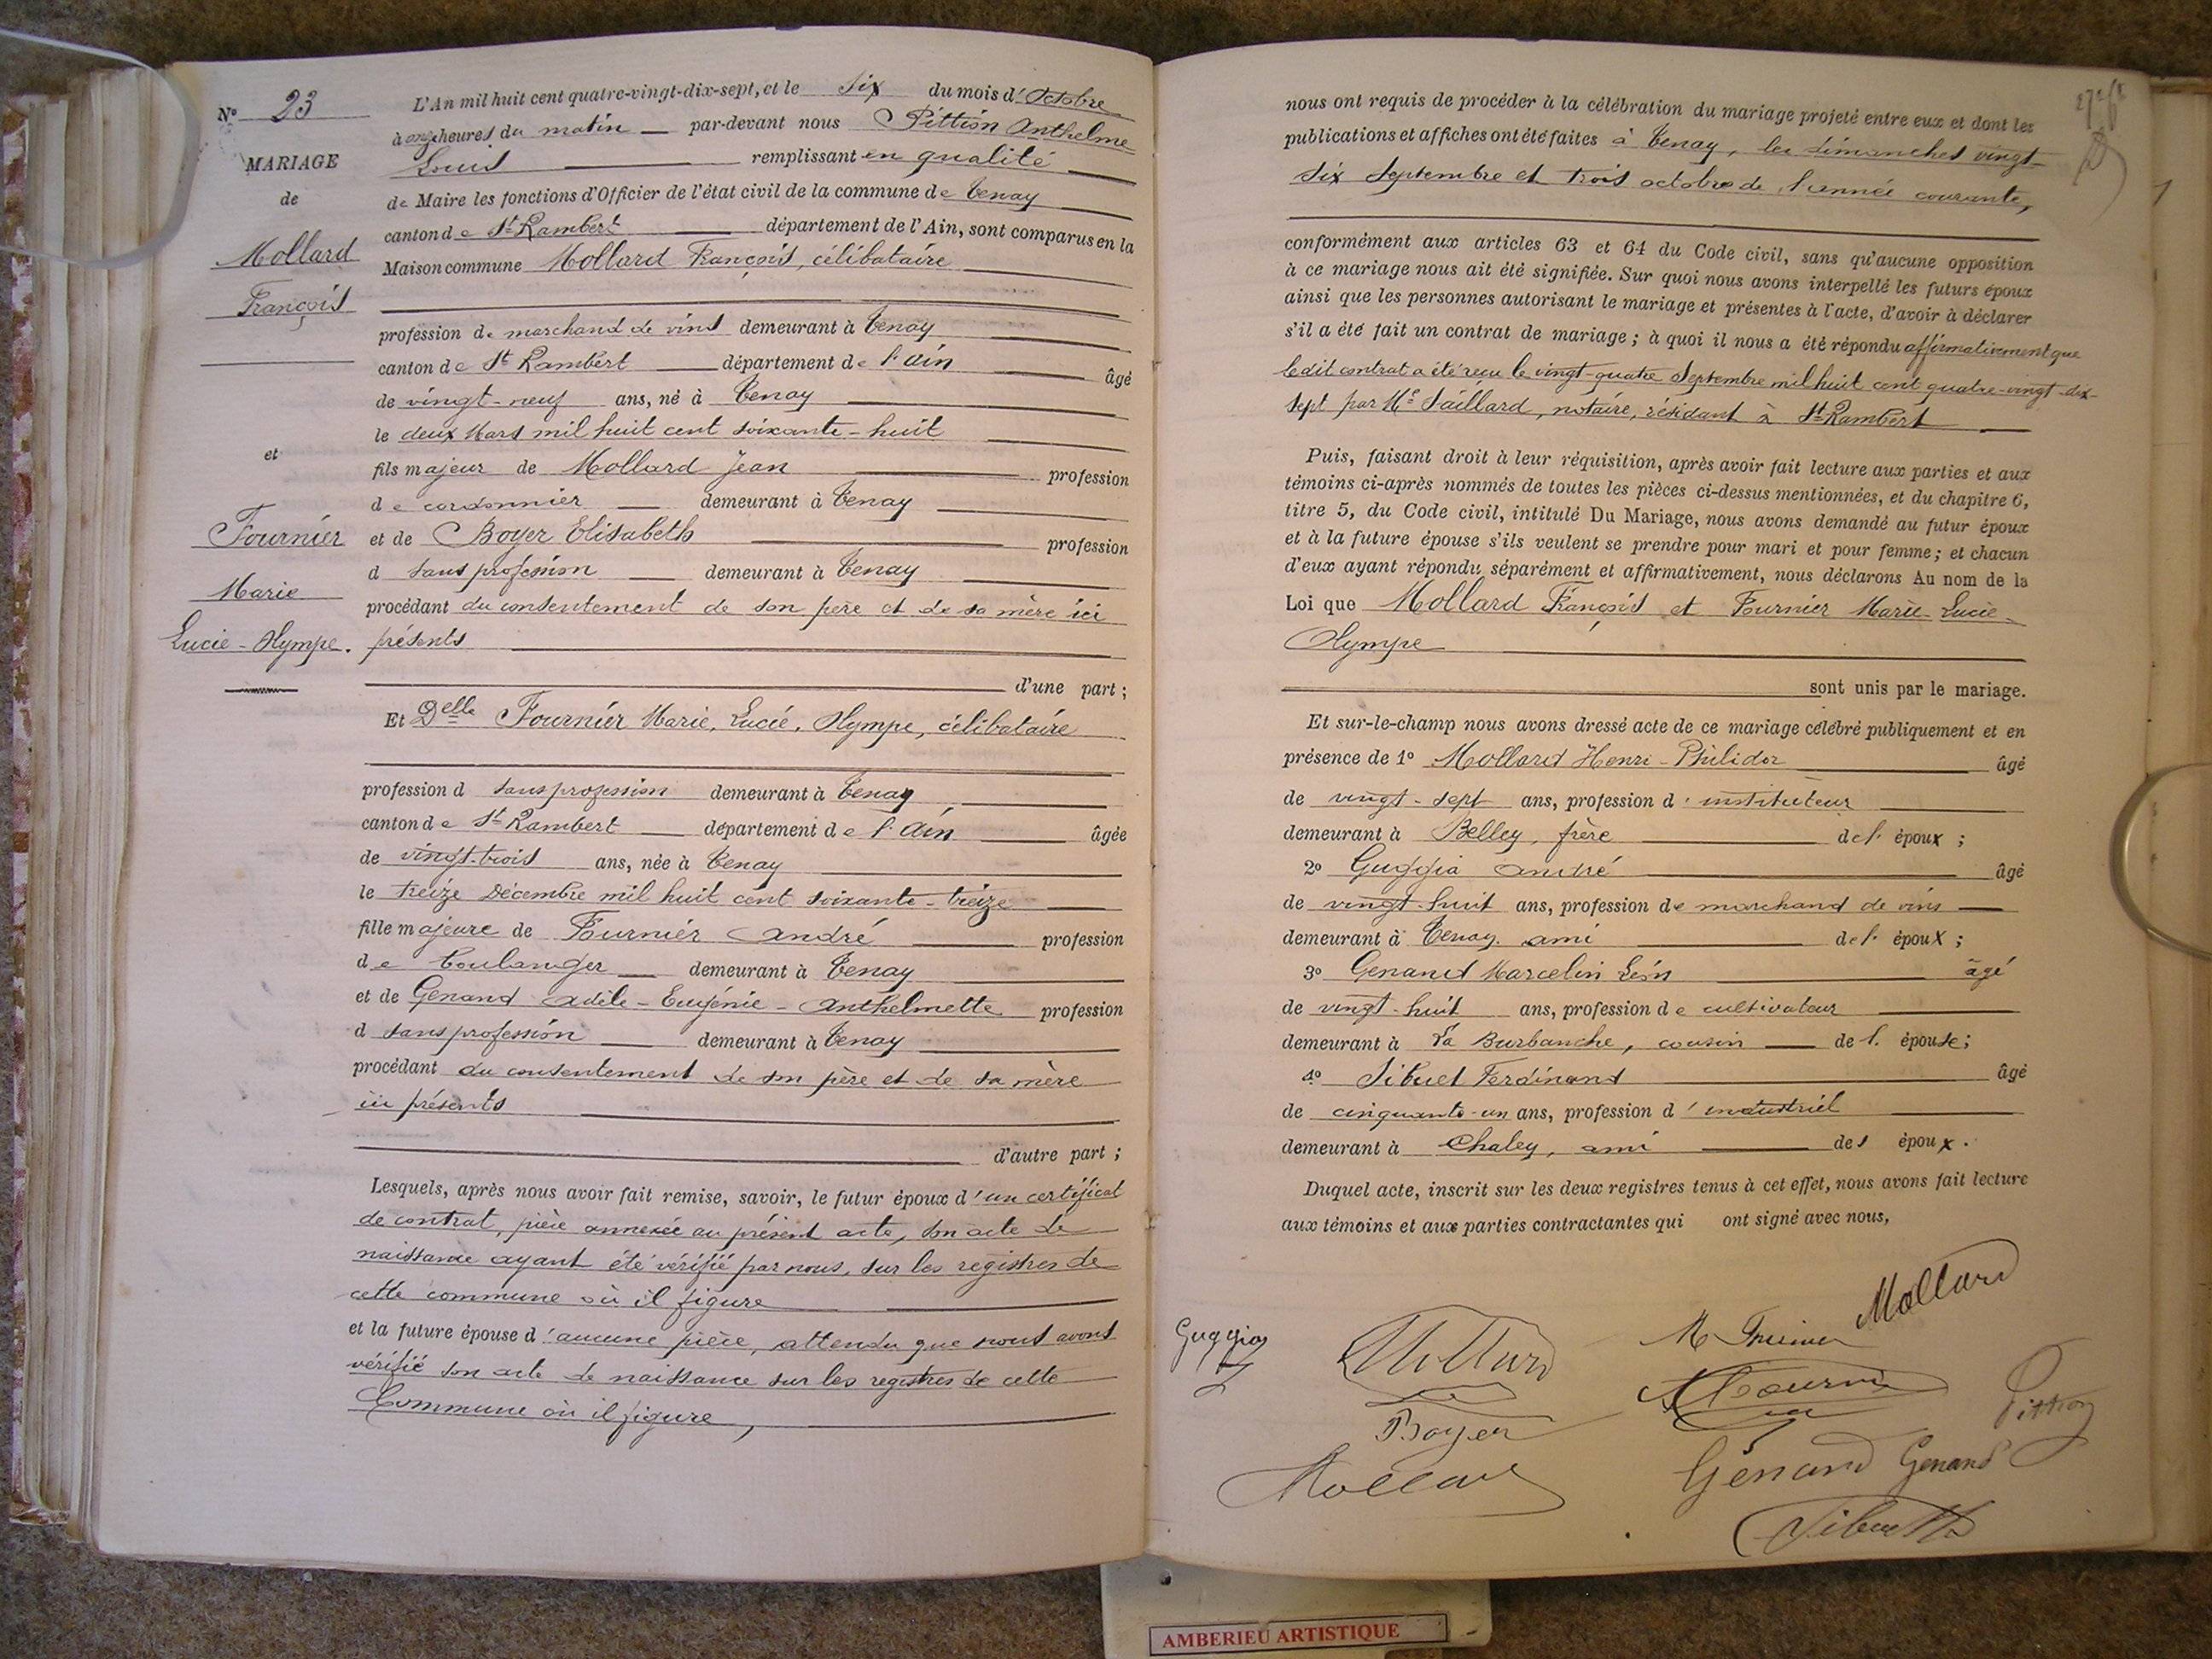 N° 23
MARIAGE
de
Mollard
François
et
Fournier
Marie
Lucie-Olympe.
L'An mil huit cent quatre-vingt-dix-sept, et le six du mois d'Octobre
à onze heures du matin par-devant nous Pittion Anthelme
Louis remplissant en qualité
de Maire les fonctions d'Officier de l'état civil de la commune de Tenay
canton de St Rambert département de l'Ain, sont comparus en la
Maison commune Mollard François, célibataire
profession de marchand de vins demeurant à Tenay
canton de St Rambert département de l'Ain âgé
de vingt-neuf ans, né à Tenay
le deux Mars mil huit cent soixante-huit
fils majeur de Mollard Jean profession
de cordonnier demeurant à Tenay
et de Boyer Elisabeth profession
d sans profession demeurant à Tenay
procédant du consentement de son père et de sa mère ici
présents
d'une part ;
Et Delle Fournier Marie, Lucie, Olympe, célibataire
profession d sans profession demeurant à Tenay
canton de St Rambert département de l'Ain âgée
de vingt-trois ans, née à Tenay
le treize Décembre mil huit cent soixante-treize
fille majeure de Fournier André profession
de boulanger demeurant à Tenay
et de Genand Adèle-Eugénie-Anthelmette profession
d sans profession demeurant à Tenay
procédant du consentement de son père et de sa mère
ici présents
d'autre part ;
Lesquels, après nous avoir fait remise, savoir, le futur époux d'un certificat
de contrat, pièce annexée au présent acte, son acte de
naissance ayant été vérifié par nous, sur les registres de
cette commune où il figure
et la future épouse d'aucune pièce, attendu que nous avons
vérifié son acte de naissance sur les registres de cette
Commune où il figure,
nous ont requis de procéder à la célébration du mariage projeté entre eux et dont les
publications et affiches ont été faites à Tenay, les dimanches vingt-
six Septembre et trois octobre de l'année courante,
conformément aux articles 63 et 64 du Code civil, sans qu'aucune opposition
à ce mariage nous ait été signifiée. Sur quoi nous avons interpellé les futurs époux
ainsi que les personnes autorisant le mariage et présentes à l'acte, d'avoir à déclarer
s'il a été fait un contrat de mariage ; à quoi il nous a été répondu affirmativement que
ledit contrat a été reçu le vingt-quatre Septembre mil huit cent quatre-vingt-dix-
sept par Me Saillard, notaire, résidant à St Rambert
Puis, faisant droit à leur réquisition, après avoir fait lecture aux parties et aux
témoins ci-après nommés de toutes les pièces ci-dessus mentionnées, et du chapitre 6,
titre 5, du Code civil, intitulé Du Mariage, nous avons demandé au futur époux
et à la future épouse s'ils veulent se prendre pour mari et pour femme ; et chacun
d'eux ayant répondu séparément et affirmativement, nous déclarons Au nom de la
Loi que Mollard François et Fournier Marie-Lucie-
Olympe
sont unis par le mariage.
Et sur-le-champ nous avons dressé acte de ce mariage célébré publiquement et en
présence de 1° Mollard Henri-Philidor âgé
de vingt-sept ans, profession d'instituteur
demeurant à Belley, frère de l' époux ;
2° Guggia André âgé
de vingt-huit ans, profession de marchand de vins
demeurant à Tenay. ami de l' époux ;
3° Genand Marcelin Léon âgé
de vingt-huit ans, profession de cultivateur
demeurant à La Burbanche, cousin de l' épouse ;
4° Sibuet Ferdinand âgé
de cinquante-un ans, profession d'industriel
demeurant à Chaley, ami des époux.
Duquel acte, inscrit sur les deux registres tenus à cet effet, nous avons fait lecture
aux témoins et aux parties contractantes qui ont signé avec nous,
Mollard
Guggia
Mollard
M Fournier
Fournier
Pittion
Boyer
Mollard
Génand
Genand
Sibuet
AMBERIEU ARTISTIQUE